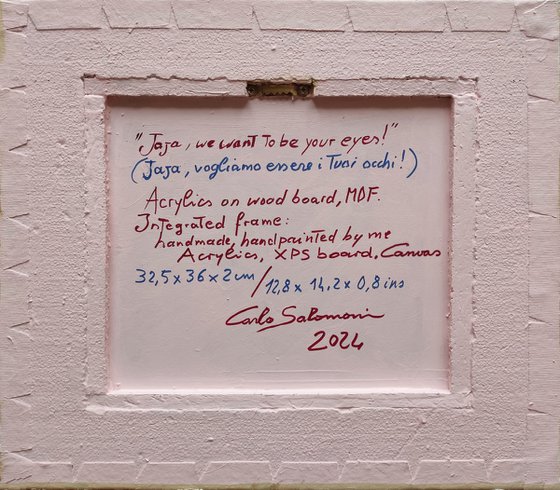 "Jaja, we want to be your eyes!"
(Jaja, vogliamo essere i Tuoi occhi!)
Acrylics on wood board, MDF.
Integrated frame:
handmade, handpainted by me
Acrylics, XPS board, Canvas
32,5 x 36 x 2 cm / 12,8 x 14,2 x 0,8 ins
Carlo Salomoni
2024